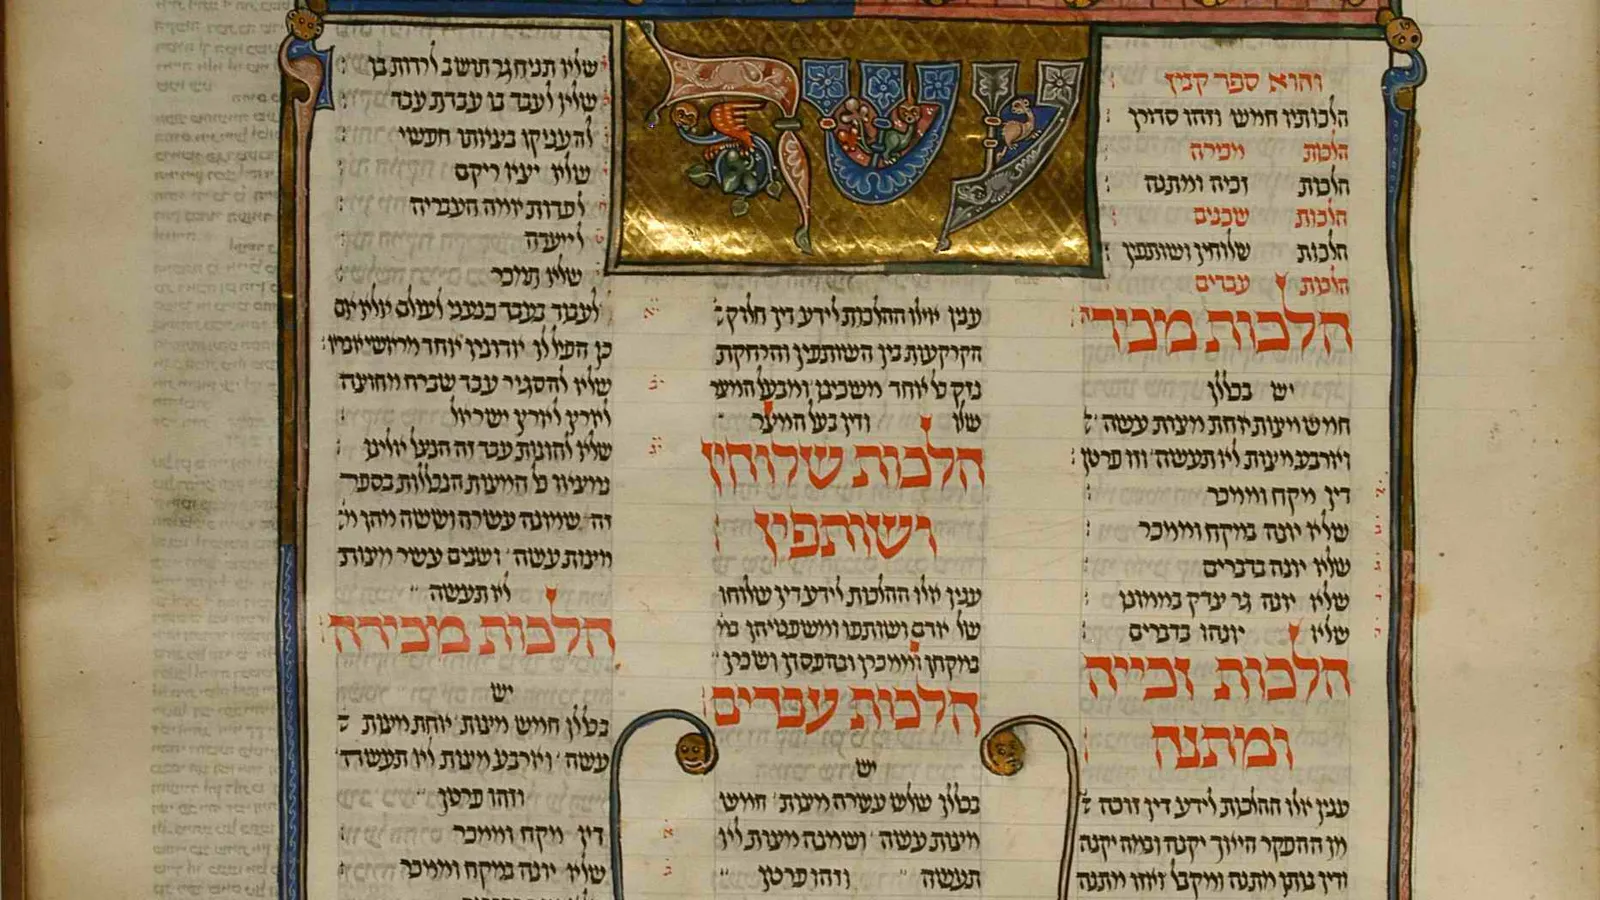 והוא ספר קנין
הלכותיו חמש וזהו סדורן
הלכות מכירה
הלכות זכיה ומתנה
הלכות שכנים
הלכות שלוחין ושותפין
הלכות עבדים
הלכות מכירה
יש בכללן
חמש מצות אחת מצות עשה
וארבע מצות לא תעשה וזו פרטן
דין מקח וממכר
שלא יונה במקח וממכר
שלא יונה בדברים
שלא יונה גר צדק בממונו
שלא יונהו בדברים
הלכות זכייה
ומתנה
ענין אלו ההלכות לידע דין זוכה
מן ההפקר היאך יקנה ובמה יקנה
ודין נותן מתנה ומקבל ואיזו מתנה
עשר
ענין אלו ההלכות לידע דין חלוק
הקרקעות בין השותפין והרחקת
נזק כל אחד משכינו ומבעל המצר
שלו ודין בעל המצר
הלכות שלוחין
ושותפין
ענין אלו ההלכות לידע דין שלוחו
של אדם ושותפו ומשפטיהן במ
במקחן וממכרן ובהפסדן ושכרן
הלכות עבדים
יש
בכללן שלש עשרה מצות חמש
מצות עשה ושמנה מצות לא
תעשה וזהו פרטן
שלא תניח גר תושב לרדות בו
שלא לעבד בו עבדת עבד
להעניקו בצאתו חפשי
שלא יצא ריקם
לפדות אמה העבריה
לייעדה
שלא תמכר
לעבוד בעבד כנעני לעולם אלא אם
כן הפיל לו אדוניו אחד מראשי אבריו
שלא להסגיר עבד שברח מחוצה
לארץ לארץ ישראל
שלא להונות עבד זה הנצל אלינו
נמצאו כל המצות הנכללות בספר
זה שמונה עשרה וששה מהן מ
מצות עשה ושנים עשר מצות
לא תעשה
הלכות מכירה
יש
בכללן חמש מצות אחת מצות
עשה וארבע מצות לא תעשה
וזהו פרטן
דין מקח וממכר
שלא יונה במקח וממכר